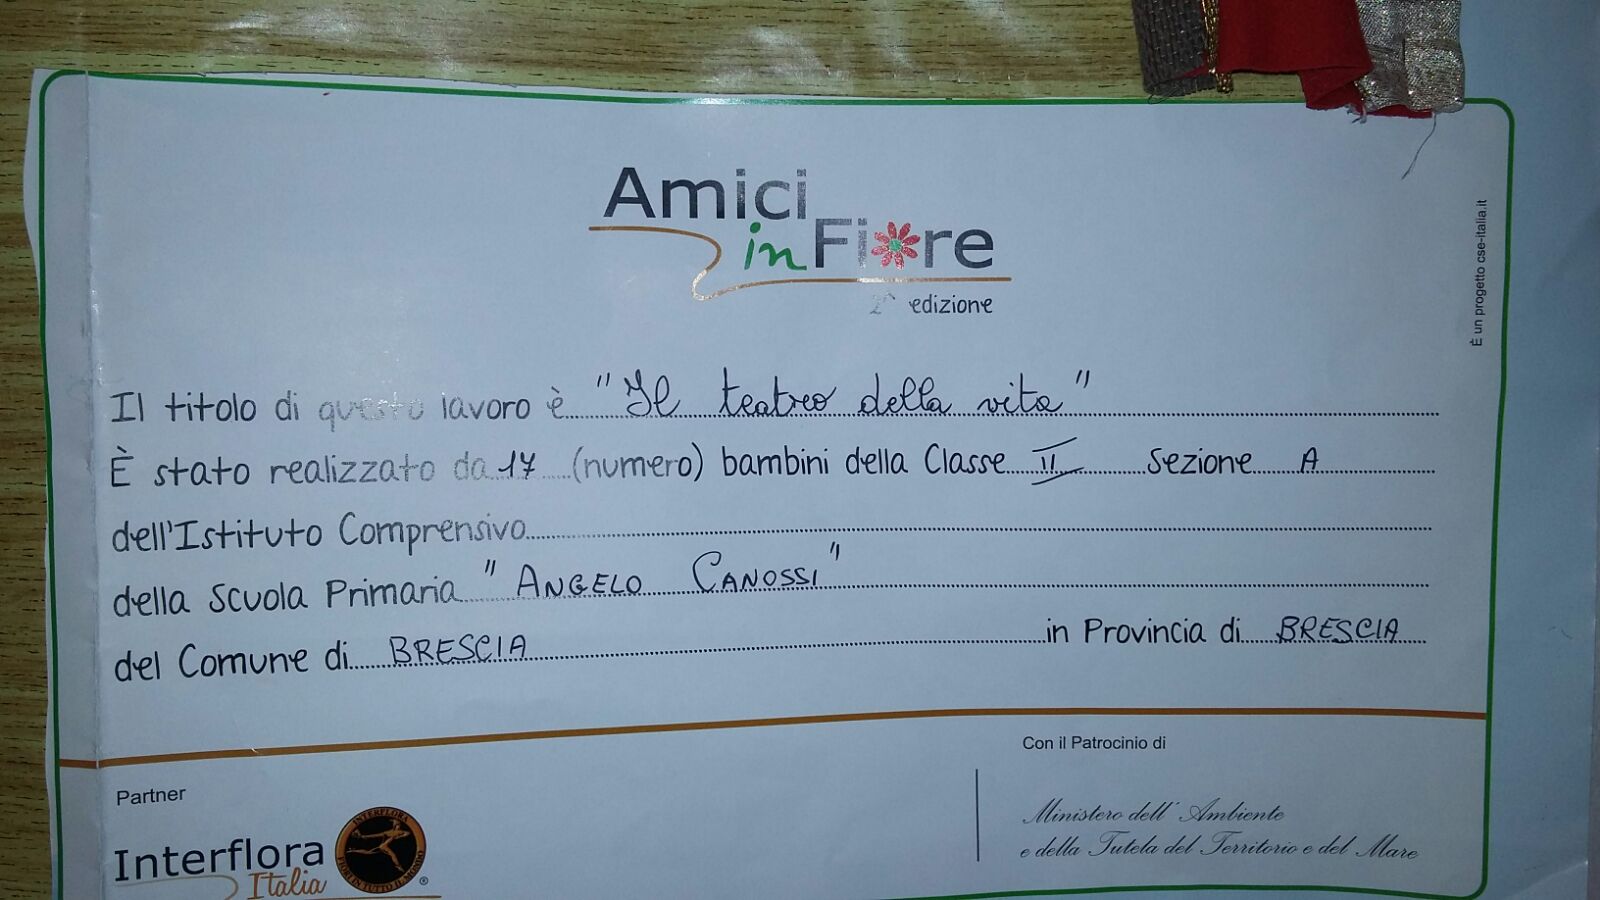 Amici
in Fiore
2^ edizione
È un progetto cse-italia.it
Il titolo di questo lavoro è "Il teatro della vita"
È stato realizzato da 17 (numero) bambini della Classe II Sezione A
dell'Istituto Comprensivo
della Scuola Primaria "ANGELO CANOSSI"
del Comune di BRESCIA in Provincia di BRESCIA
Partner
Interflora
Italia
INTERFLORA
FIORI IN TUTTO IL MONDO
®
Con il Patrocinio di
Ministero dell'Ambiente
e della Tutela del Territorio e del Mare